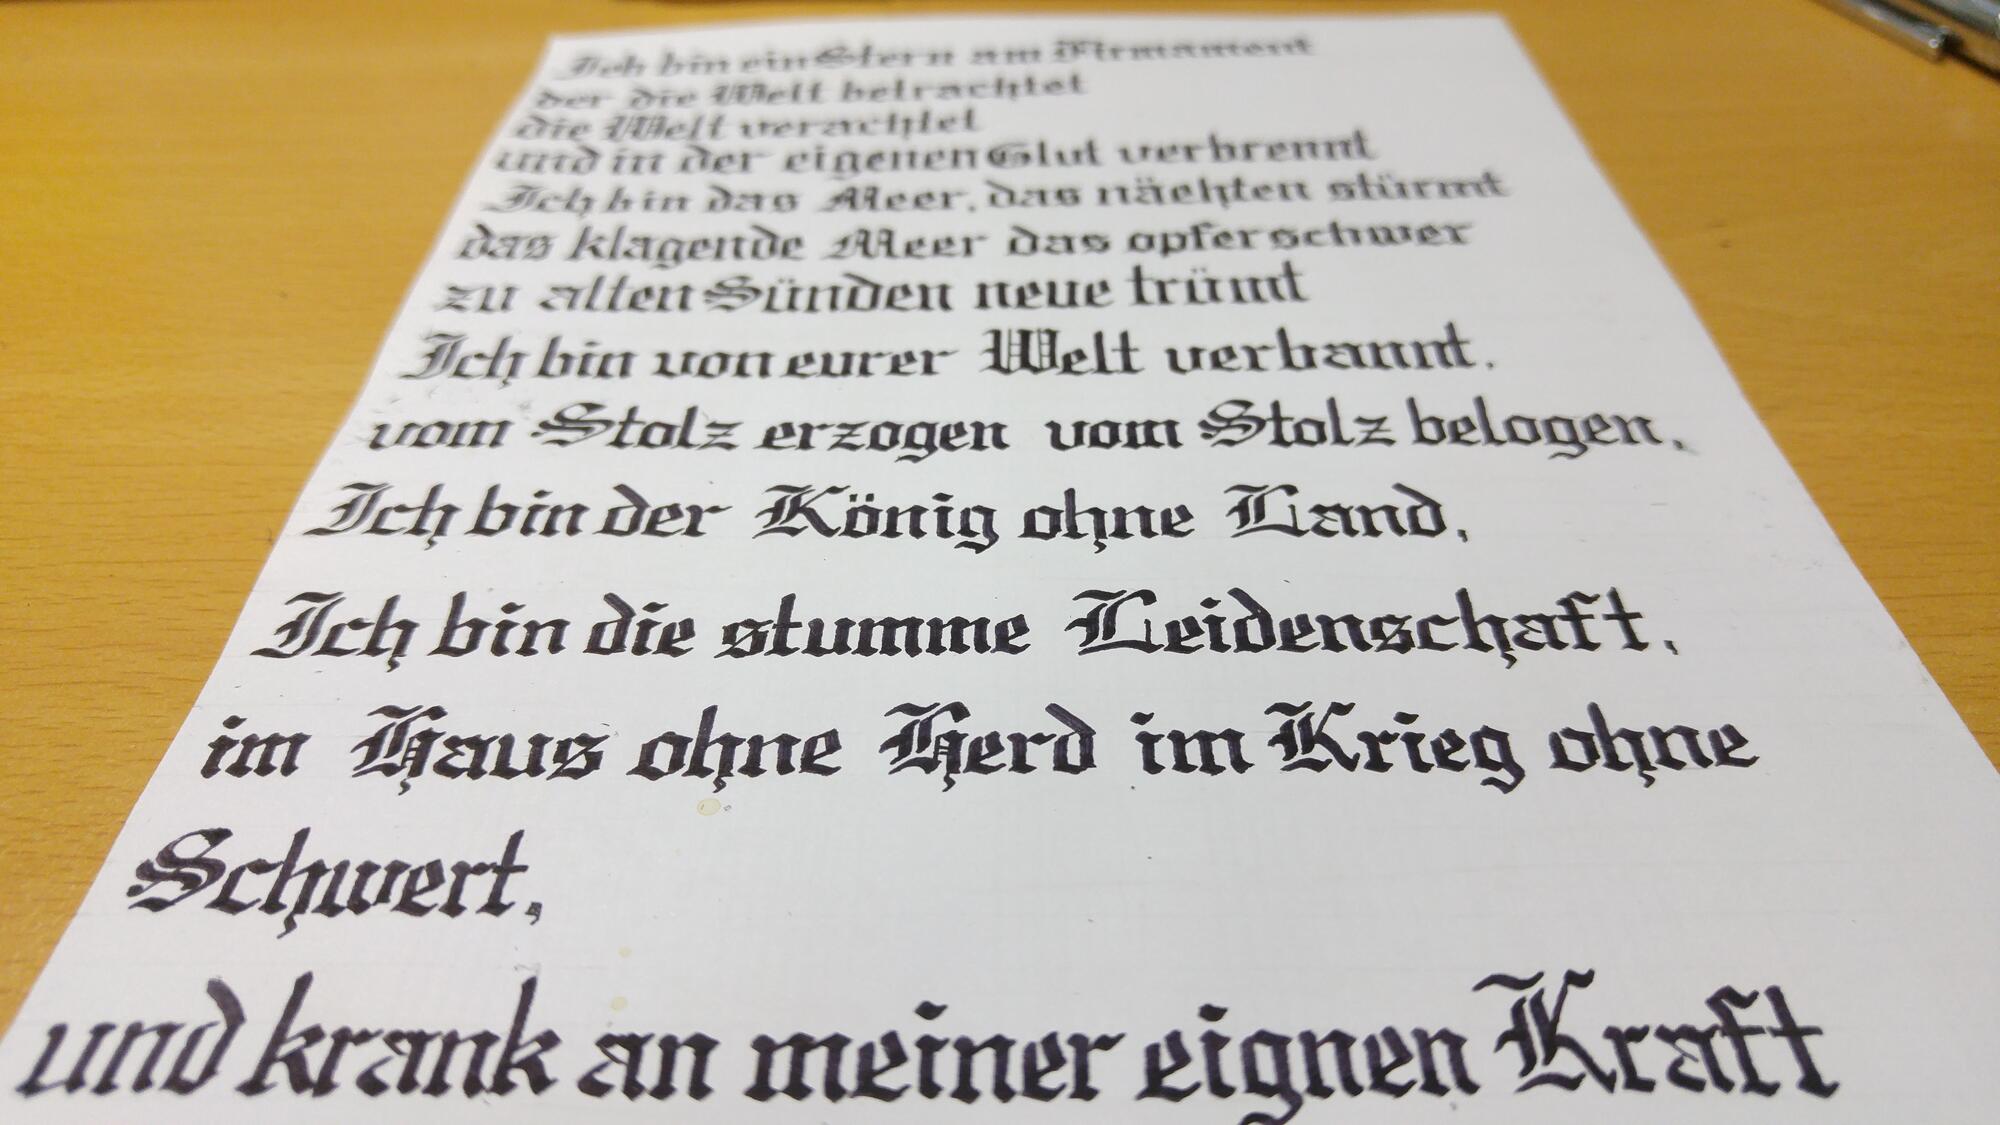 Ich bin ein Stern am Firmament
der die Welt betrachtet
die Welt verachtet
und in der eigenen Glut verbrennt
Ich bin das Meer, das nächten stürmt
das klagende Meer das opferschwer
zu alten Sünden neue trümt
Ich bin von eurer Welt verbannt,
vom Stolz erzogen vom Stolz belogen,
Ich bin der König ohne Land,
Ich bin die stumme Leidenschaft,
im Haus ohne Herd im Krieg ohne
Schwert,
und krank an meiner eignen Kraft